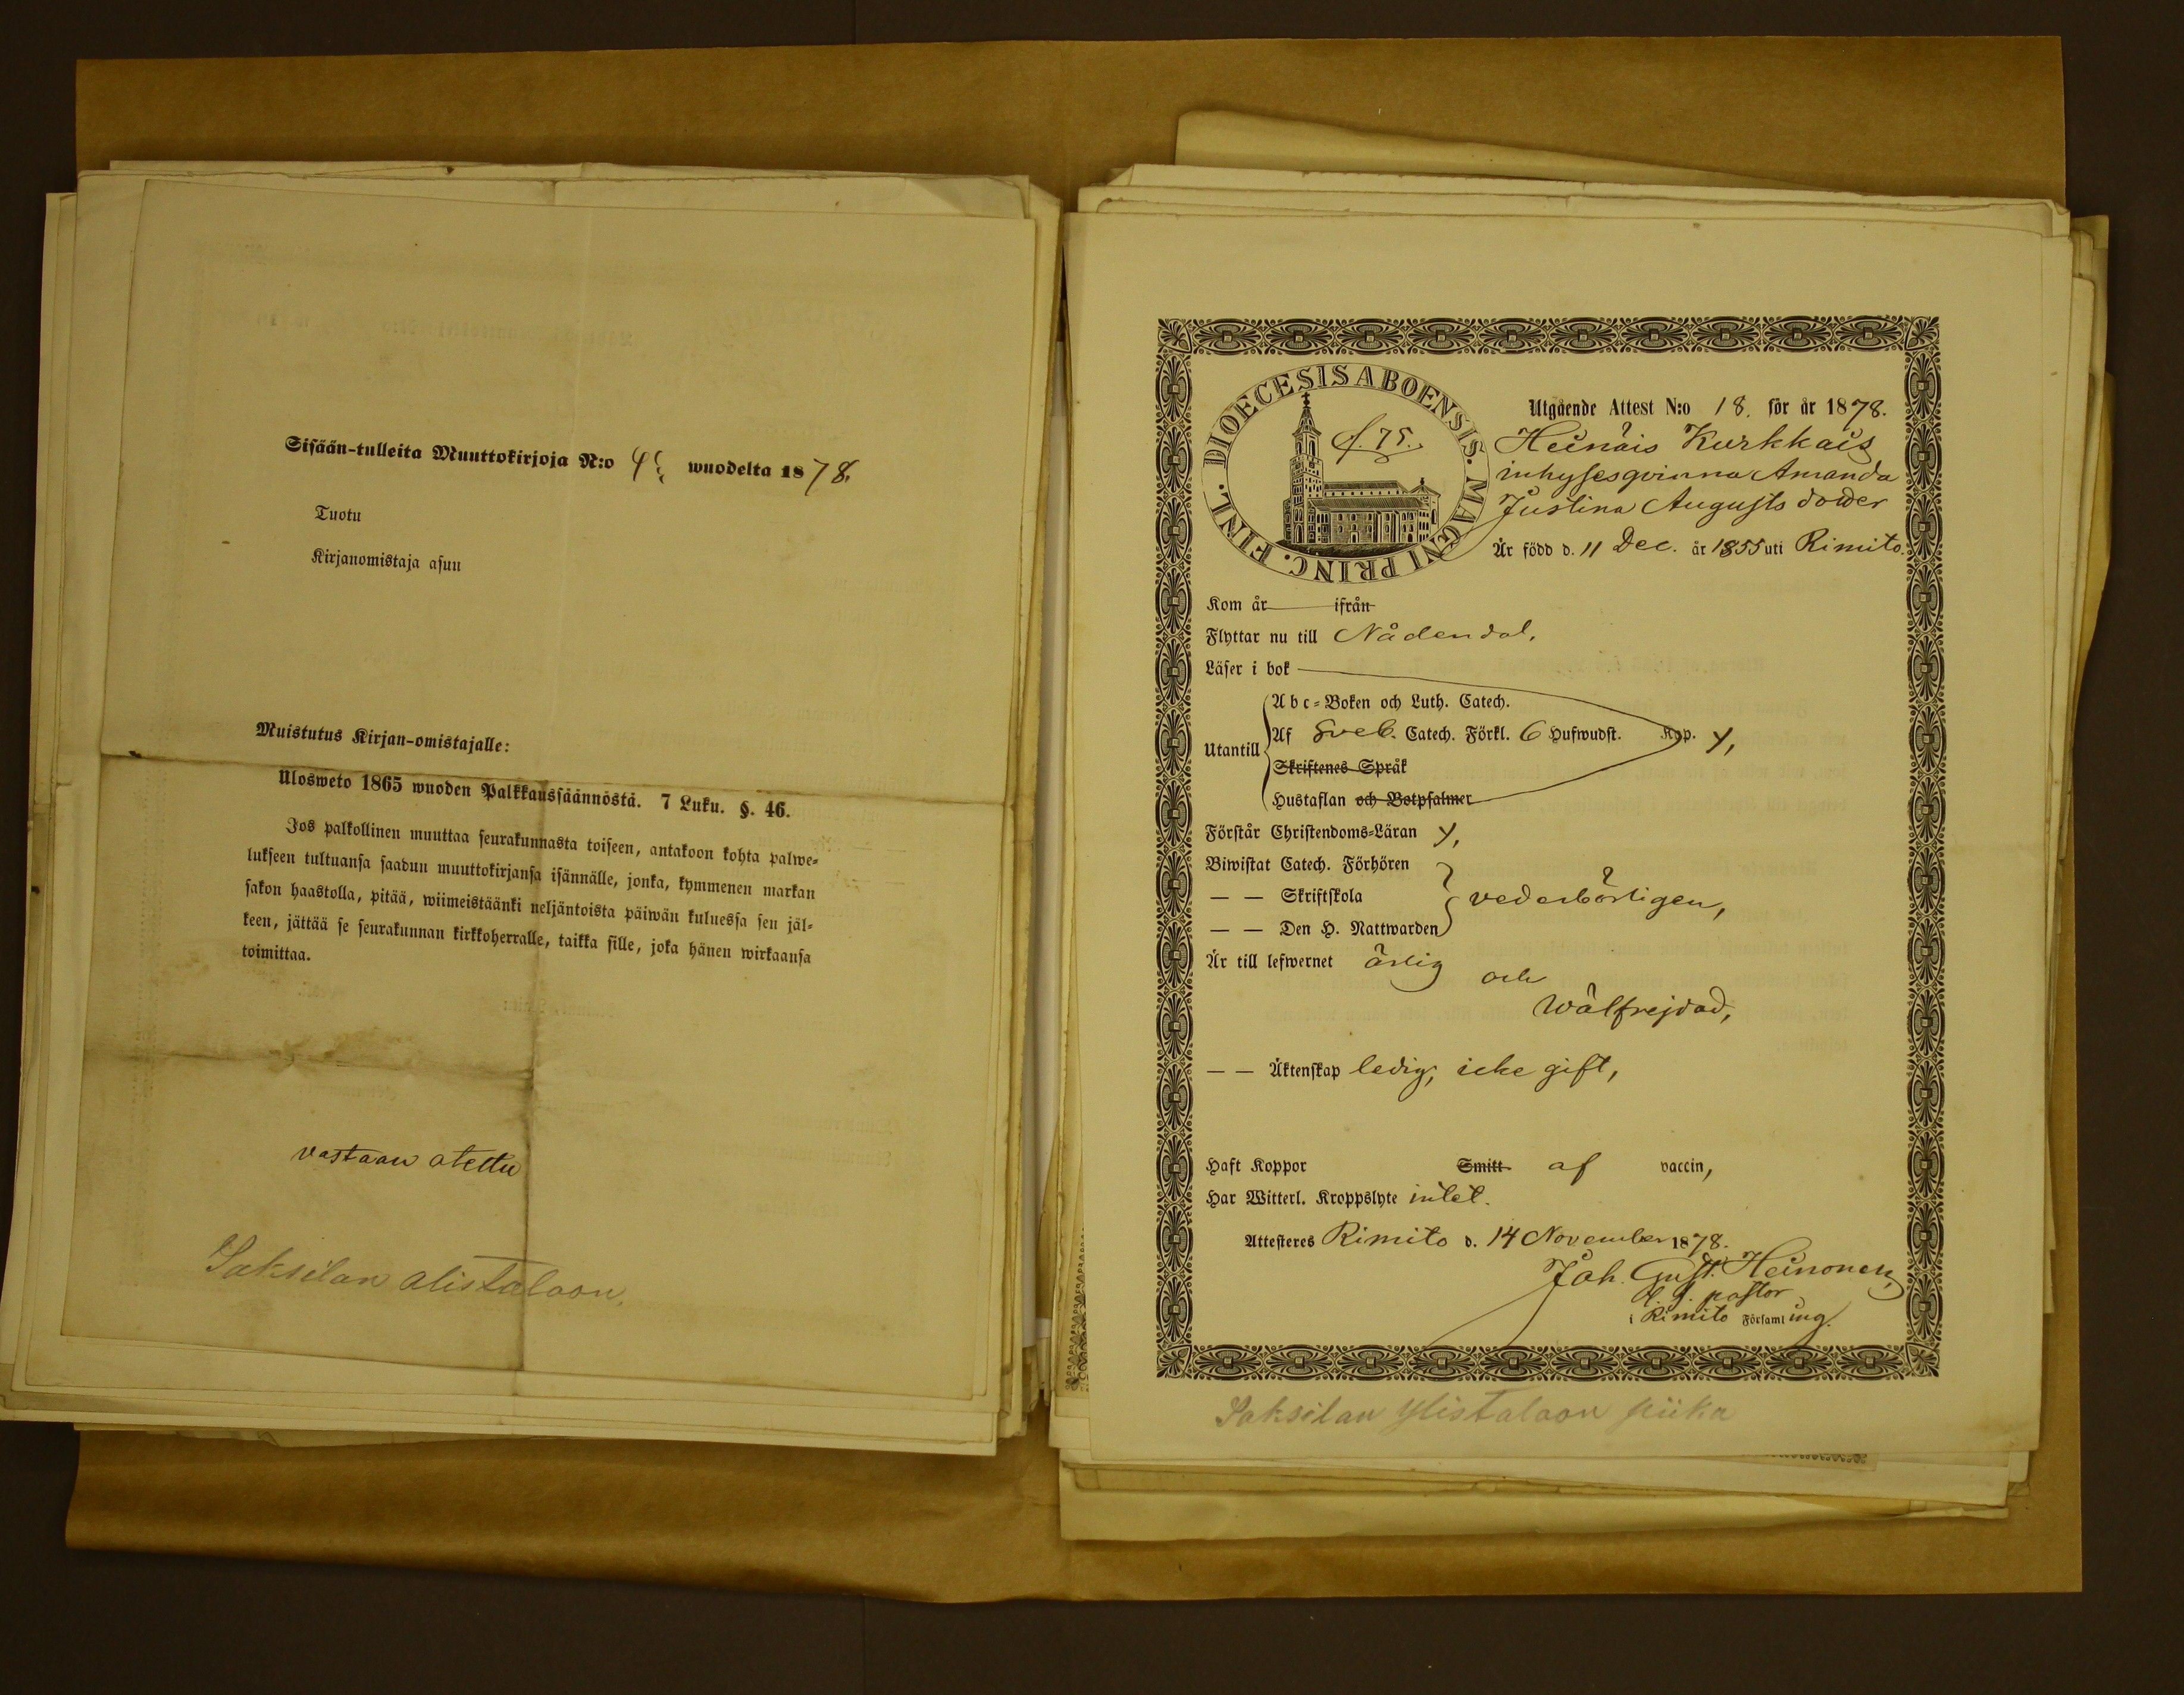 Sisään-tulleita Muuttokirjoja N:o wuodelta 1878.
Tuotu
Kirjanomistaja asuu
Muistutus Kirjan-omistajalle:
Ulosweto 1865 wuoden Palkkaussäännöstä. 7 Luku. §. 46.
Jos palkollinen muuttaa seurakunnasta toiseen, antakoon kohta palwe-
lukseen tultuansa saadun muuttokirjansa isännälle, jonka, kymmenen markan
sakon haastolla, pitää, wiimeistäänki neljäntoista päiwän kuluessa sen jäl-
keen, jättää se seurakunnan kirkkoherralle, taikka sille, joka hänen wirkaansa
toimittaa.
vastaan otettu
Saksilan alistaloon.
DIOECESIS ABOENSIS. MAGNI PRINC. FINL.
f. 75.
Utgående Attest N:o 18. för år 1878.
Heinäis Kurkkais
inhysesqvinna Amanda
Justina Augusts dotter
Är född d. 11 Dec. år 1855 uti Rimito.
Kom år ifrån
Flyttar nu till Nådendal.
Läser i bok
Abc-Boken och Luth. Catech.
Utantill Af Sveb. Catech. Förkl. 6 Hufwudst. Kap. y,
Skriftenes Språk
Hustaflan och Botpsalmer
Förstår Christendoms-Läran y,
Biwistat Catech. Förhören
— — Skriftskola vederbörligen,
— — Den H. Nattwarden
Är till lefwernet ärlig och
wälfrejdad,
— — Äktenskap ledig, icke gift,
Haft Koppor Smitt af vaccin,
Har Witterl. Kroppslyte intet.
Attesteras Rimito d. 14 November 1878.
Joh. Gust. Heinonen,
pastor
i Rimito Församling.
Saksilan ylistaloon piika